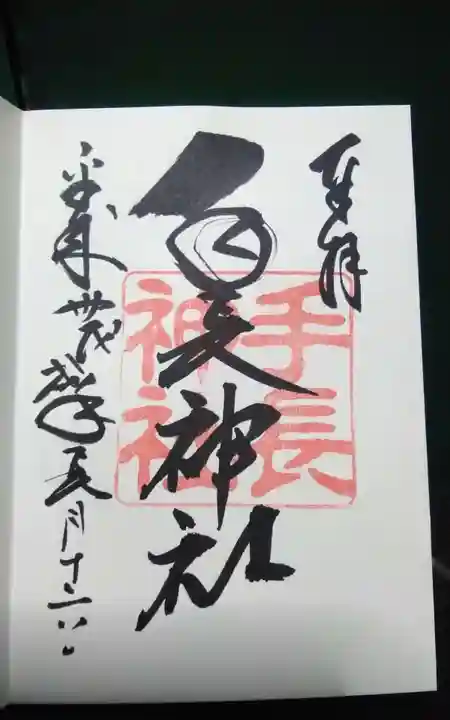 奉拝
手長神社
手長
神社
平成廿九年五月十二日